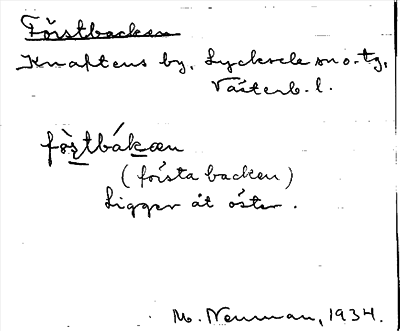 Förstbacken
Knaftens by, Lycksele sn o. tg,
Västerb. l.
fòștbákæn
(första backen)
Ligger åt öster.
M. Neuman, 1934.